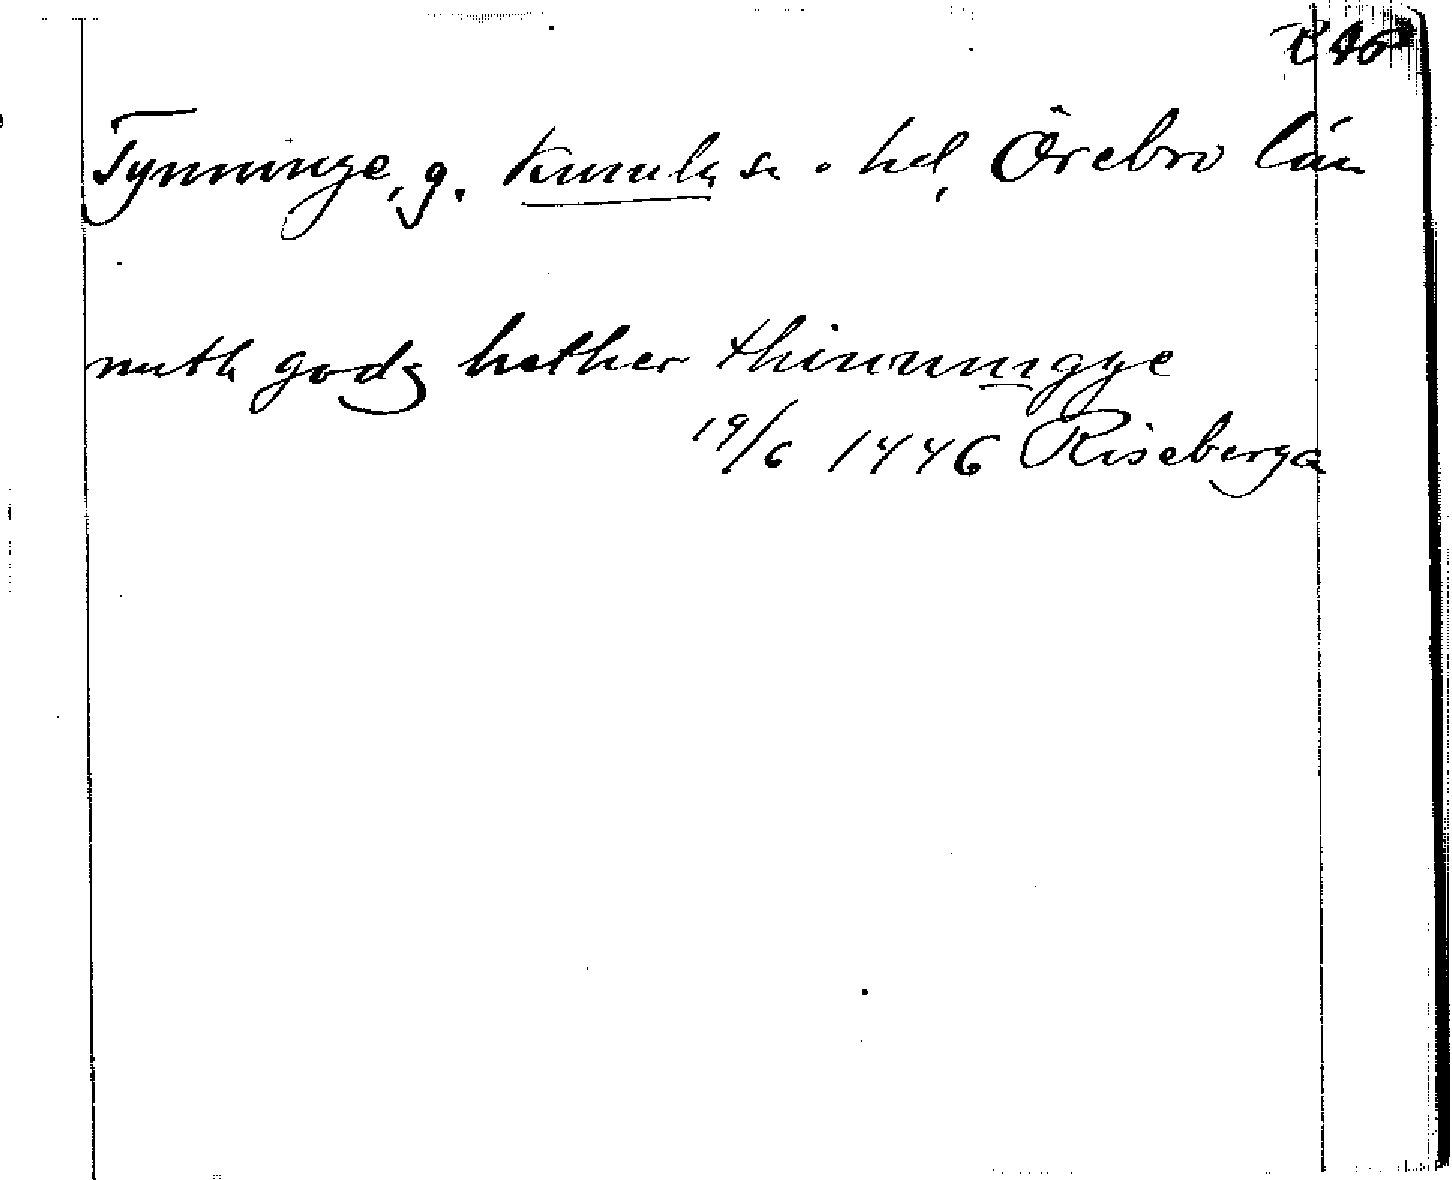 Tynninge, g. Kumla sn o. hd, Örebro län
mith godz hether thinninngye
19/6 1446 Riseberga